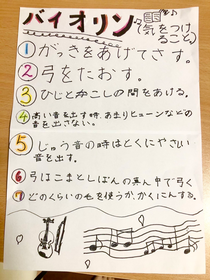 バイオリン
(気をつけ
ること)
① がっきをあげてさす。
② 弓をたおす。
③ ひじとこしの間をあける。
④ 高い音を出す時、あまりヒューンなどの
音を出さない。
⑤ じゅう音の時はとくにやさしい
音を出す。
⑥ 弓はこまとしばんの真ん中で弓く
⑦ どのくらいの弓を使うか、かくにんする。